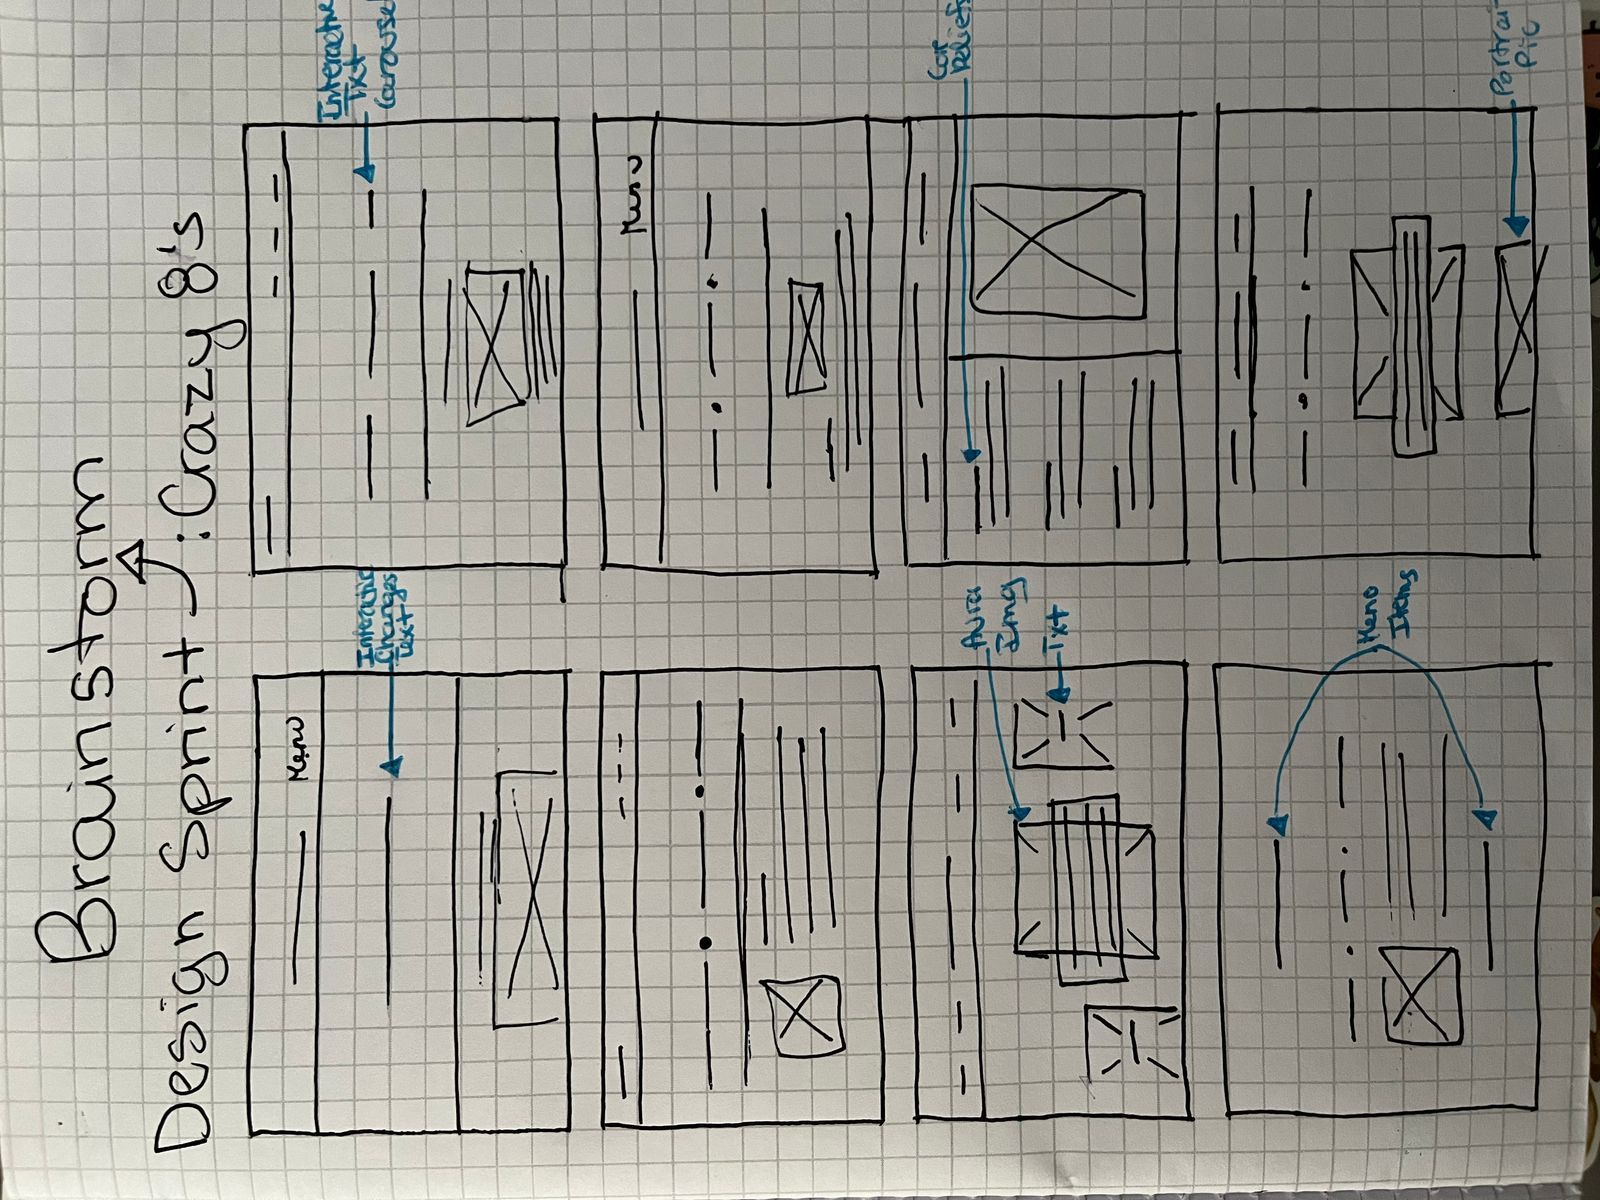 Brainstorm
Design Sprint : Crazy 8's
Menu
Interactive
Changes
Text
Interactive
Txt
Carousel
Menu
Img
Txt
Core
Beliefs
Menu
Items
Portrait
Pic